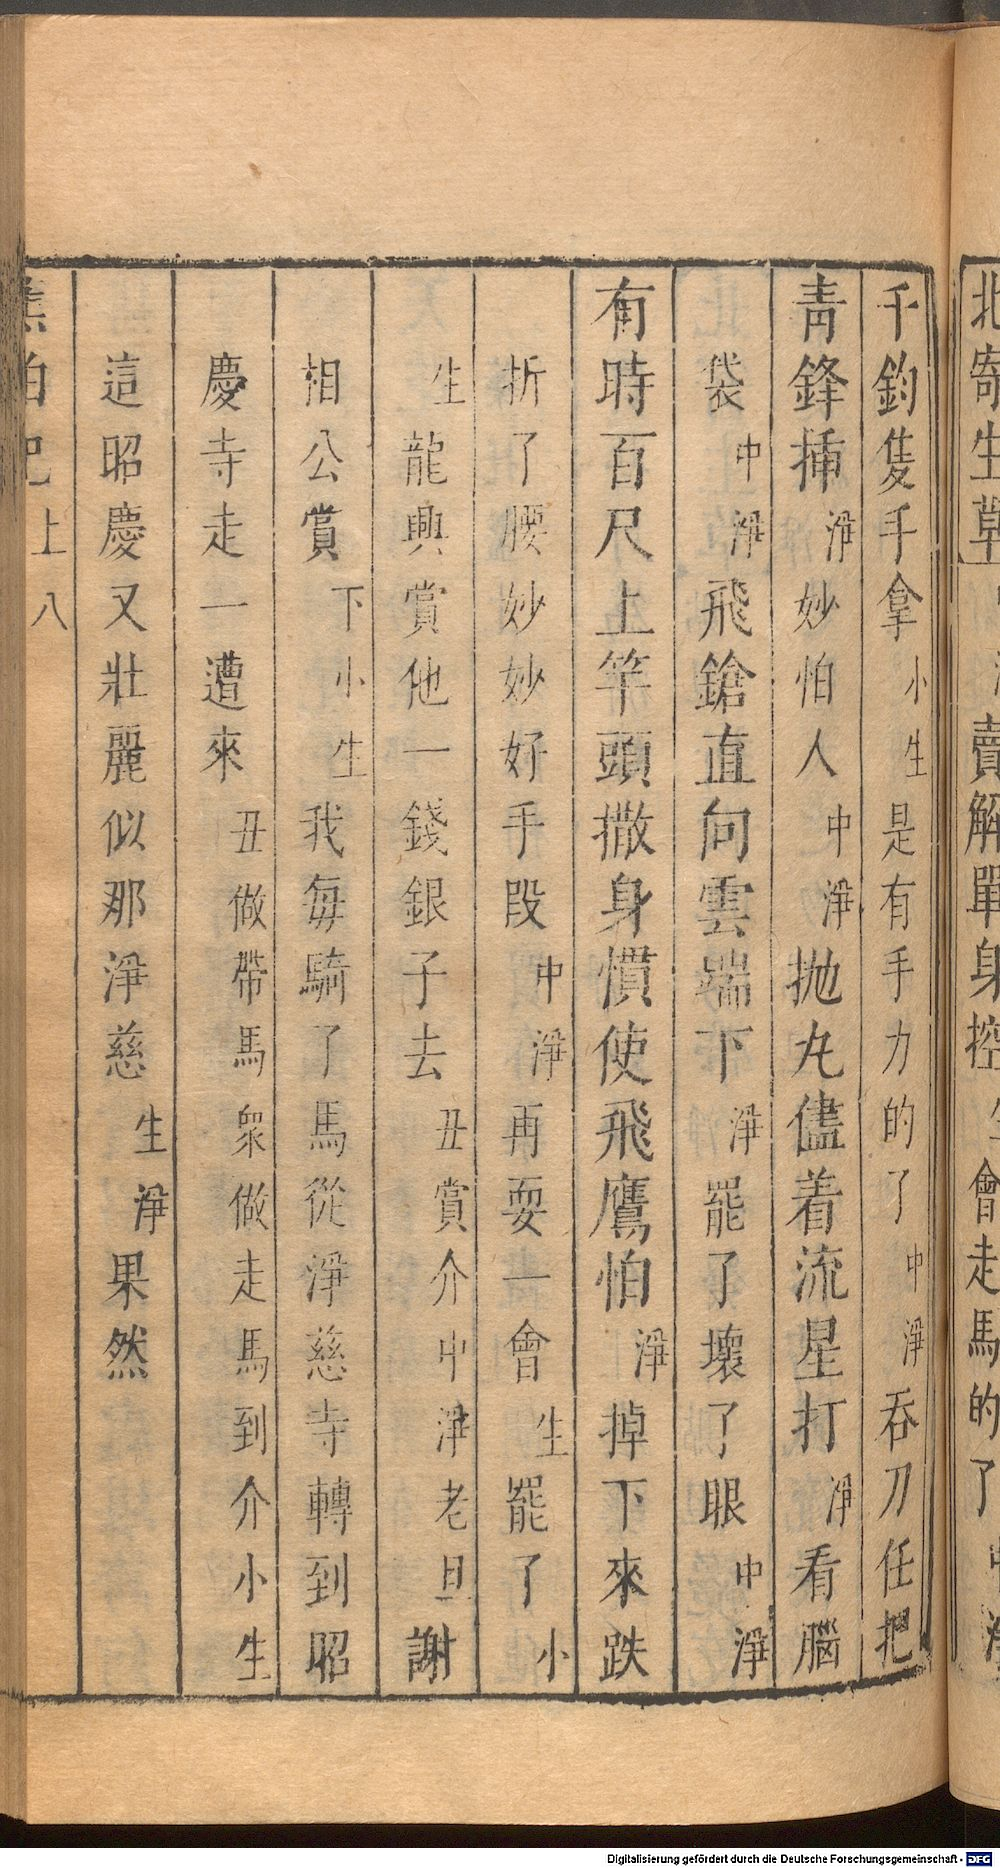 北寄生草
賣解單身控
會走馬的了
千鈞隻手拿小生是有手力的了中淨吞刀任把
青鋒揷淨妙怕人中淨拋丸儘着流星打淨看腦
袋中淨飛鎗直向雲端下淨罷了壞了眼中淨
有時百尺上竿頭撒身慣使飛鷹怕淨掉下來跌
折了腰妙妙好手段中淨再耍一會生罷了小
生龍興賞他一錢銀子去丑賞介中淨老旦謝
相公賞下小生我每騎了馬從淨慈寺轉到昭
慶寺走一遭來丑做帶馬衆做走馬到介小生
這昭慶又壯麗似那淨慈生淨果然
蕉帕記上 八
Digitalisierung gefördert durch die Deutsche Forschungsgemeinschaft - DFG